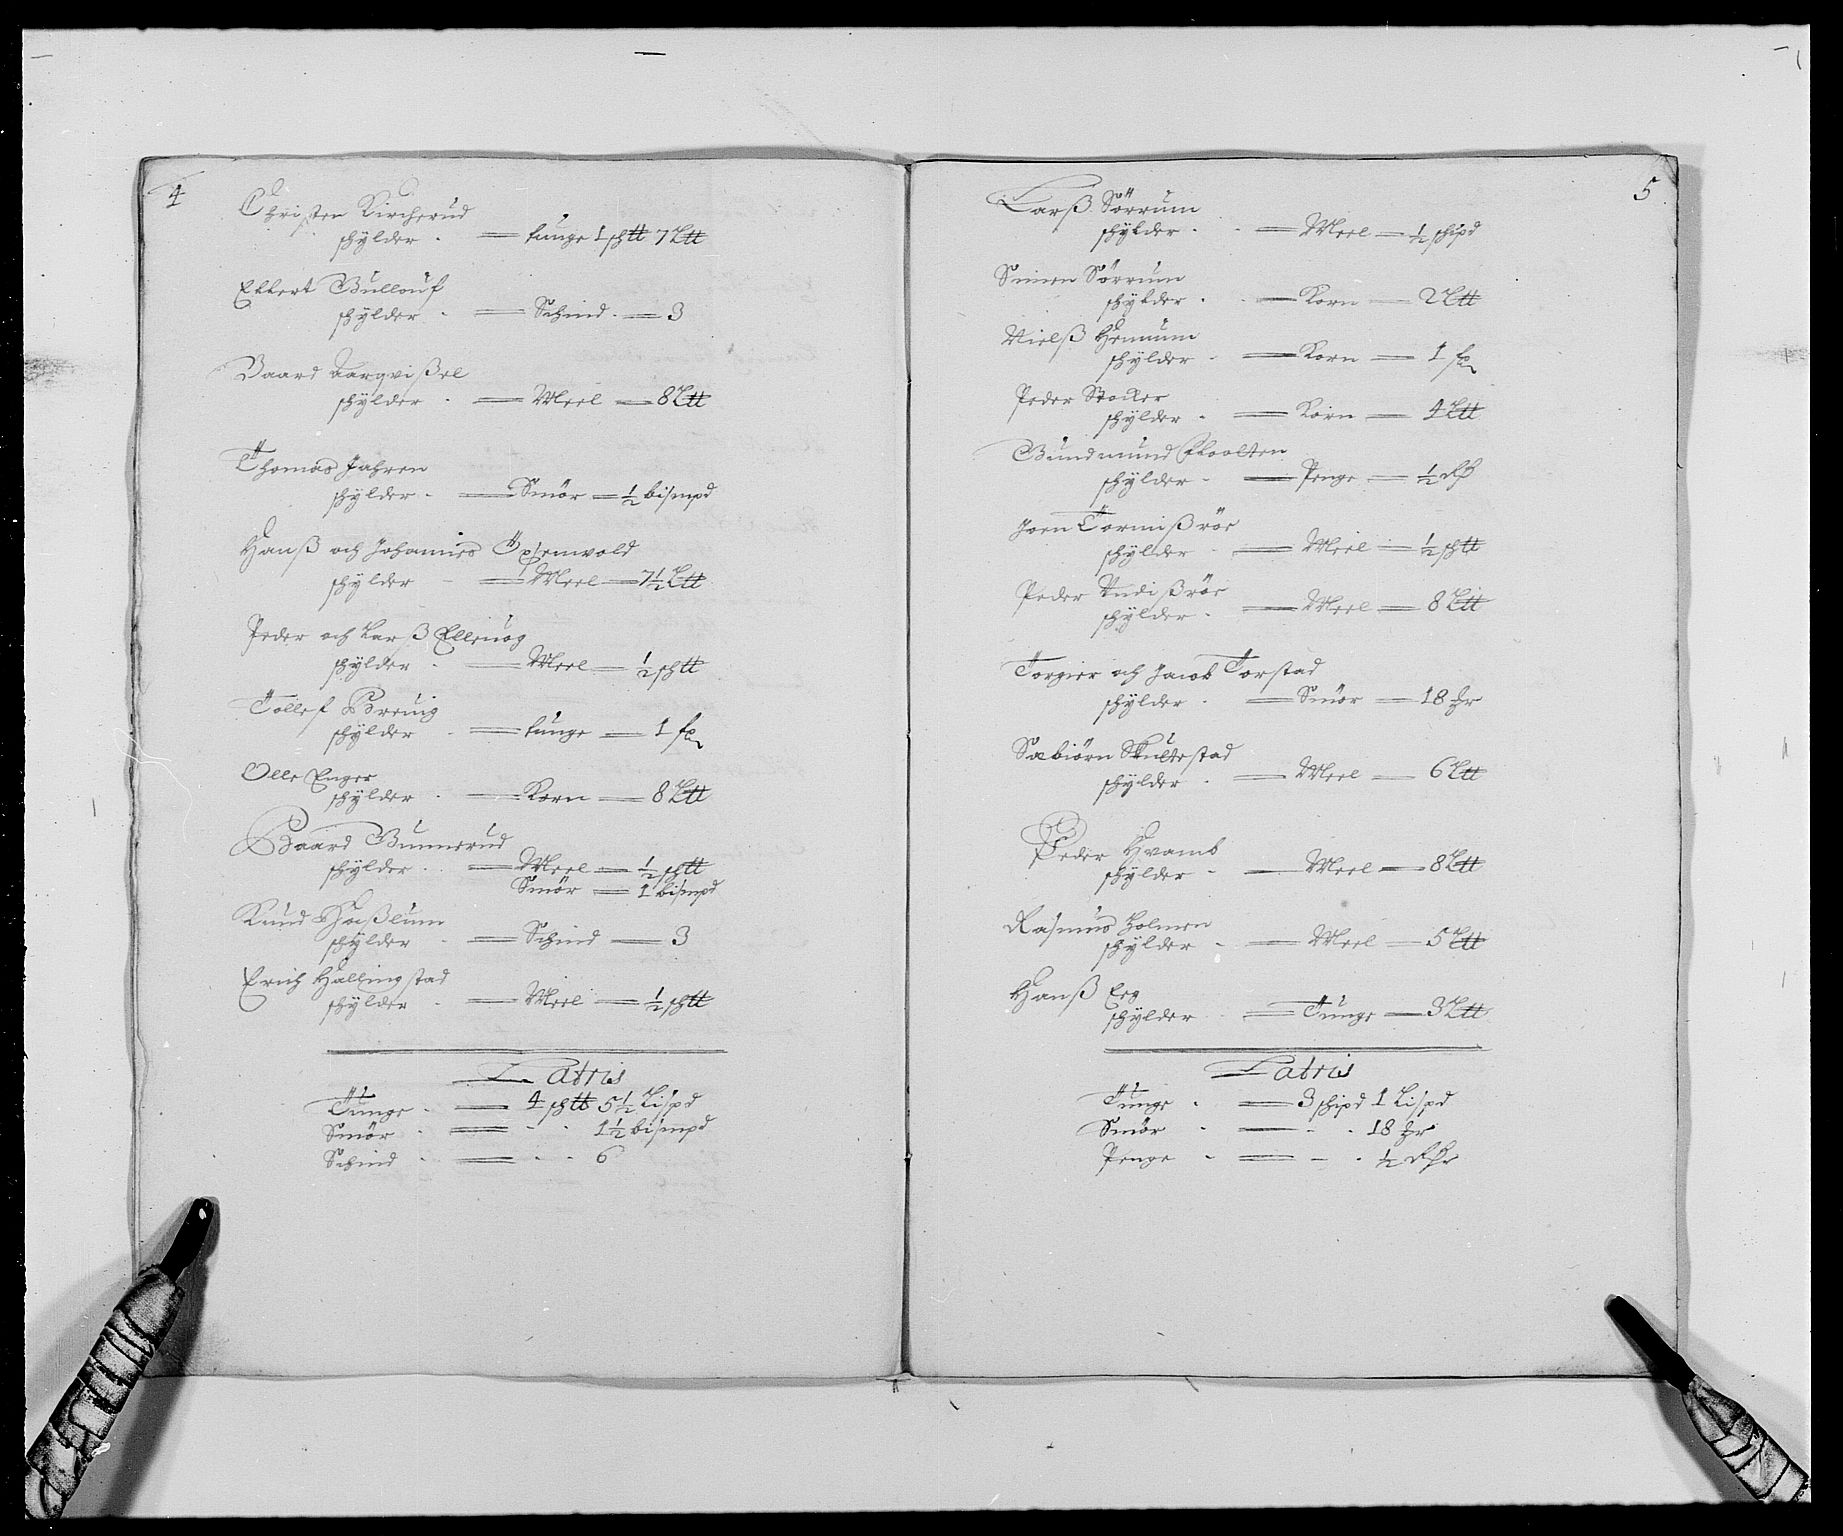 4
Christen Kircherud
schylder - tunge 1 schtt 7 Ltt
Ellert Gullouf
schylder - Schind - 3
Baard Aarqvißel
schylder - Meel - 8 Ltt
Thomas Jahren
schylder - Smör - ½ bismpd
Hanß och Johannes Opsenvold
schylder - Meel - 7½ Ltt
Peder och Larß Ellevog
schylder - Meel - ½ schtt
Tollef Brevig
schylder - tunge - 1 fr
Olle Enger
schylder - Korn - 8 Ltt
Baard Gunnerud
schylder - Meel - ½ schtt
Smör - 1 bismpd
Knud Haßlum
schylder - Schind - 3
Erich Hallingstad
schylder - Meel - ½ schtt
Latris
Tunge - 4 schtt 5½ Lispd
Smör - 1½ bismpd
Schind - 6
5
Larß Sörrum
schylder - Meel - ½ schipd
Simen Sörrum
schylder - Korn - 2 Ltt
Nielß Hemum
schylder - Korn - 1 fr
Peder Stocker
schylder - Korn - 4 Ltt
Gundmund
schylder - Penge - ½ Rd
Joen Tormißröe
schylder - Meel - ½ schtt
Peder Andißröe
schylder - Meel - 8 Ltt
Torgier och Jacob Torstad
schylder - Smör - 18 hr
Sæbiörn Skultestad
schylder - Meel - 6 Ltt
Peder Hvamb
schylder - Meel - 8 Ltt
Rasmus Holmen
schylder - Meel - 5 Ltt
Hanß Eeg
schylder - Tunge - 3 Ltt
Latris
Tunge - 3 schipd 1 Lispd
Smör - 18 hr
Penge - ½ Rdr